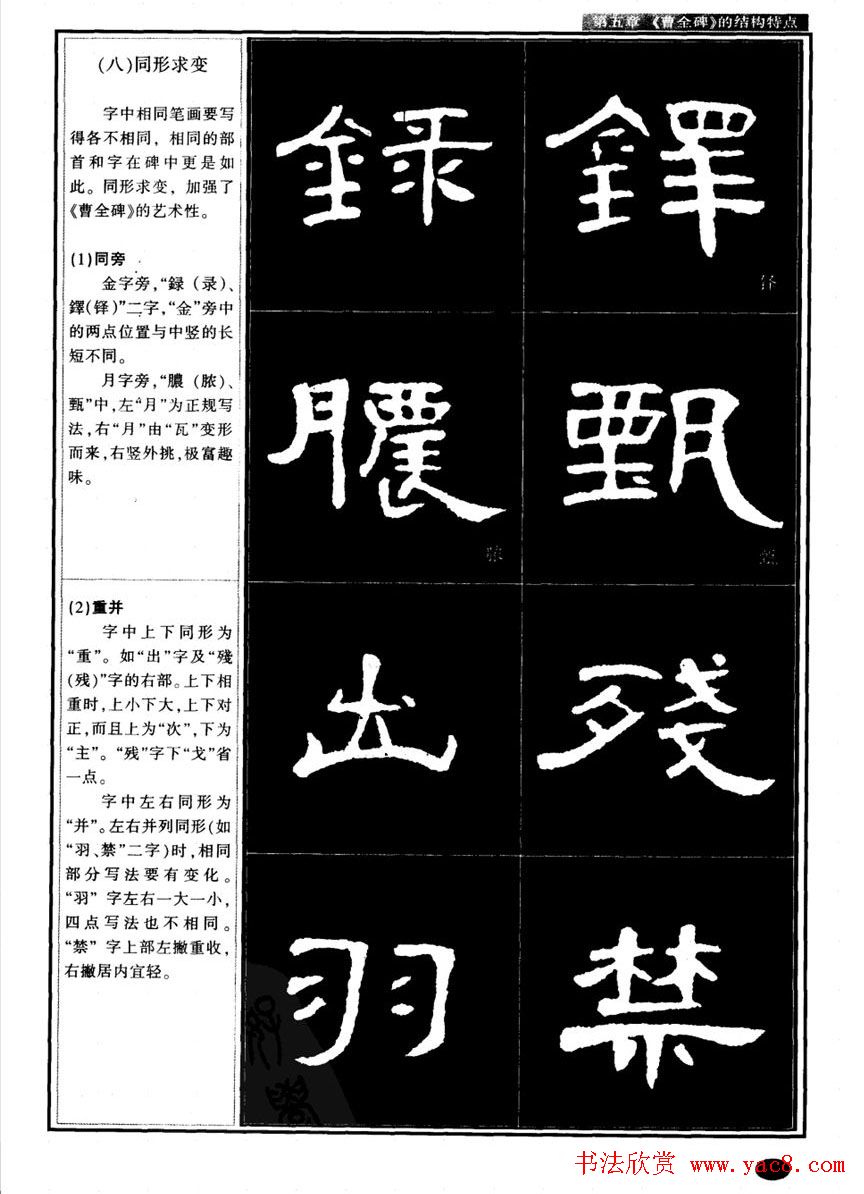 第五章 《曹全碑》的结构特点
(八)同形求变
字中相同笔画要写
得各不相同，相同的部
首和字在碑中更是如
此。同形求变，加强了
《曹全碑》的艺术性。
(1)同旁
金字旁，“録（录）、
鐸(铎)”二字，“金”旁中
的两点位置与中竖的长
短不同。
月字旁，“膿（脓）、
甄”中，左“月”为正规写
法，右“月”由“瓦”变形
而来，右竖外挑，极富趣
味。
(2)重并
字中上下同形为
“重”。如“出”字及“殘
(残)”字的右部。上下相
重时，上小下大，上下对
正，而且上为“次”，下为
“主”。“残”字下“戈”省
一点。
字中左右同形为
“并”。左右并列同形(如
“羽、禁”二字)时，相同
部分写法要有变化。
“羽”字左右一大一小，
四点写法也不相同。
“禁”字上部左撇重收，
右撇居内宜轻。
録 鐸
铎
膿 甄
脓 甄
出 殘
羽 禁
书法欣赏 www.yac8.com